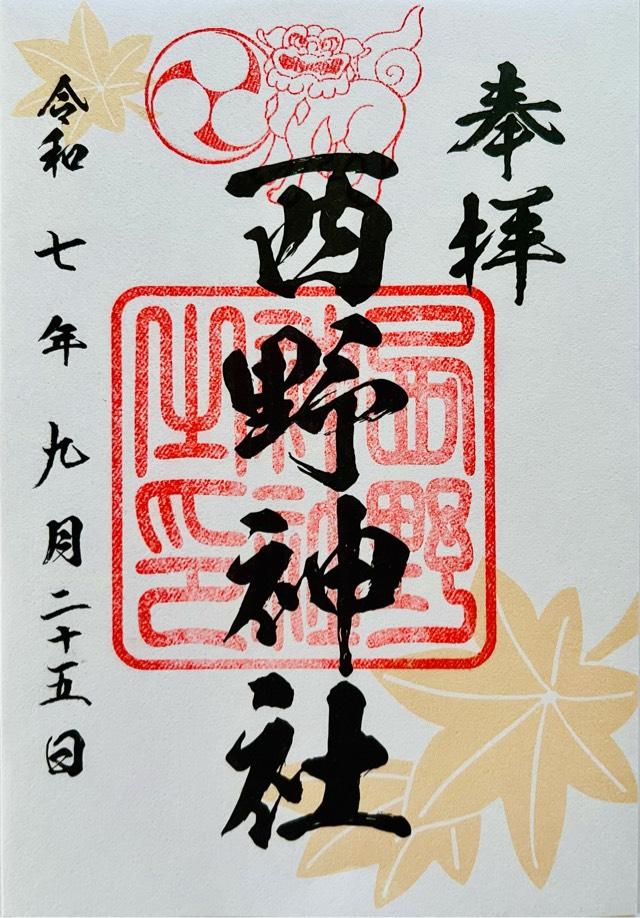 奉拝
西野神社
西野神社之印
令和七年九月二十五日